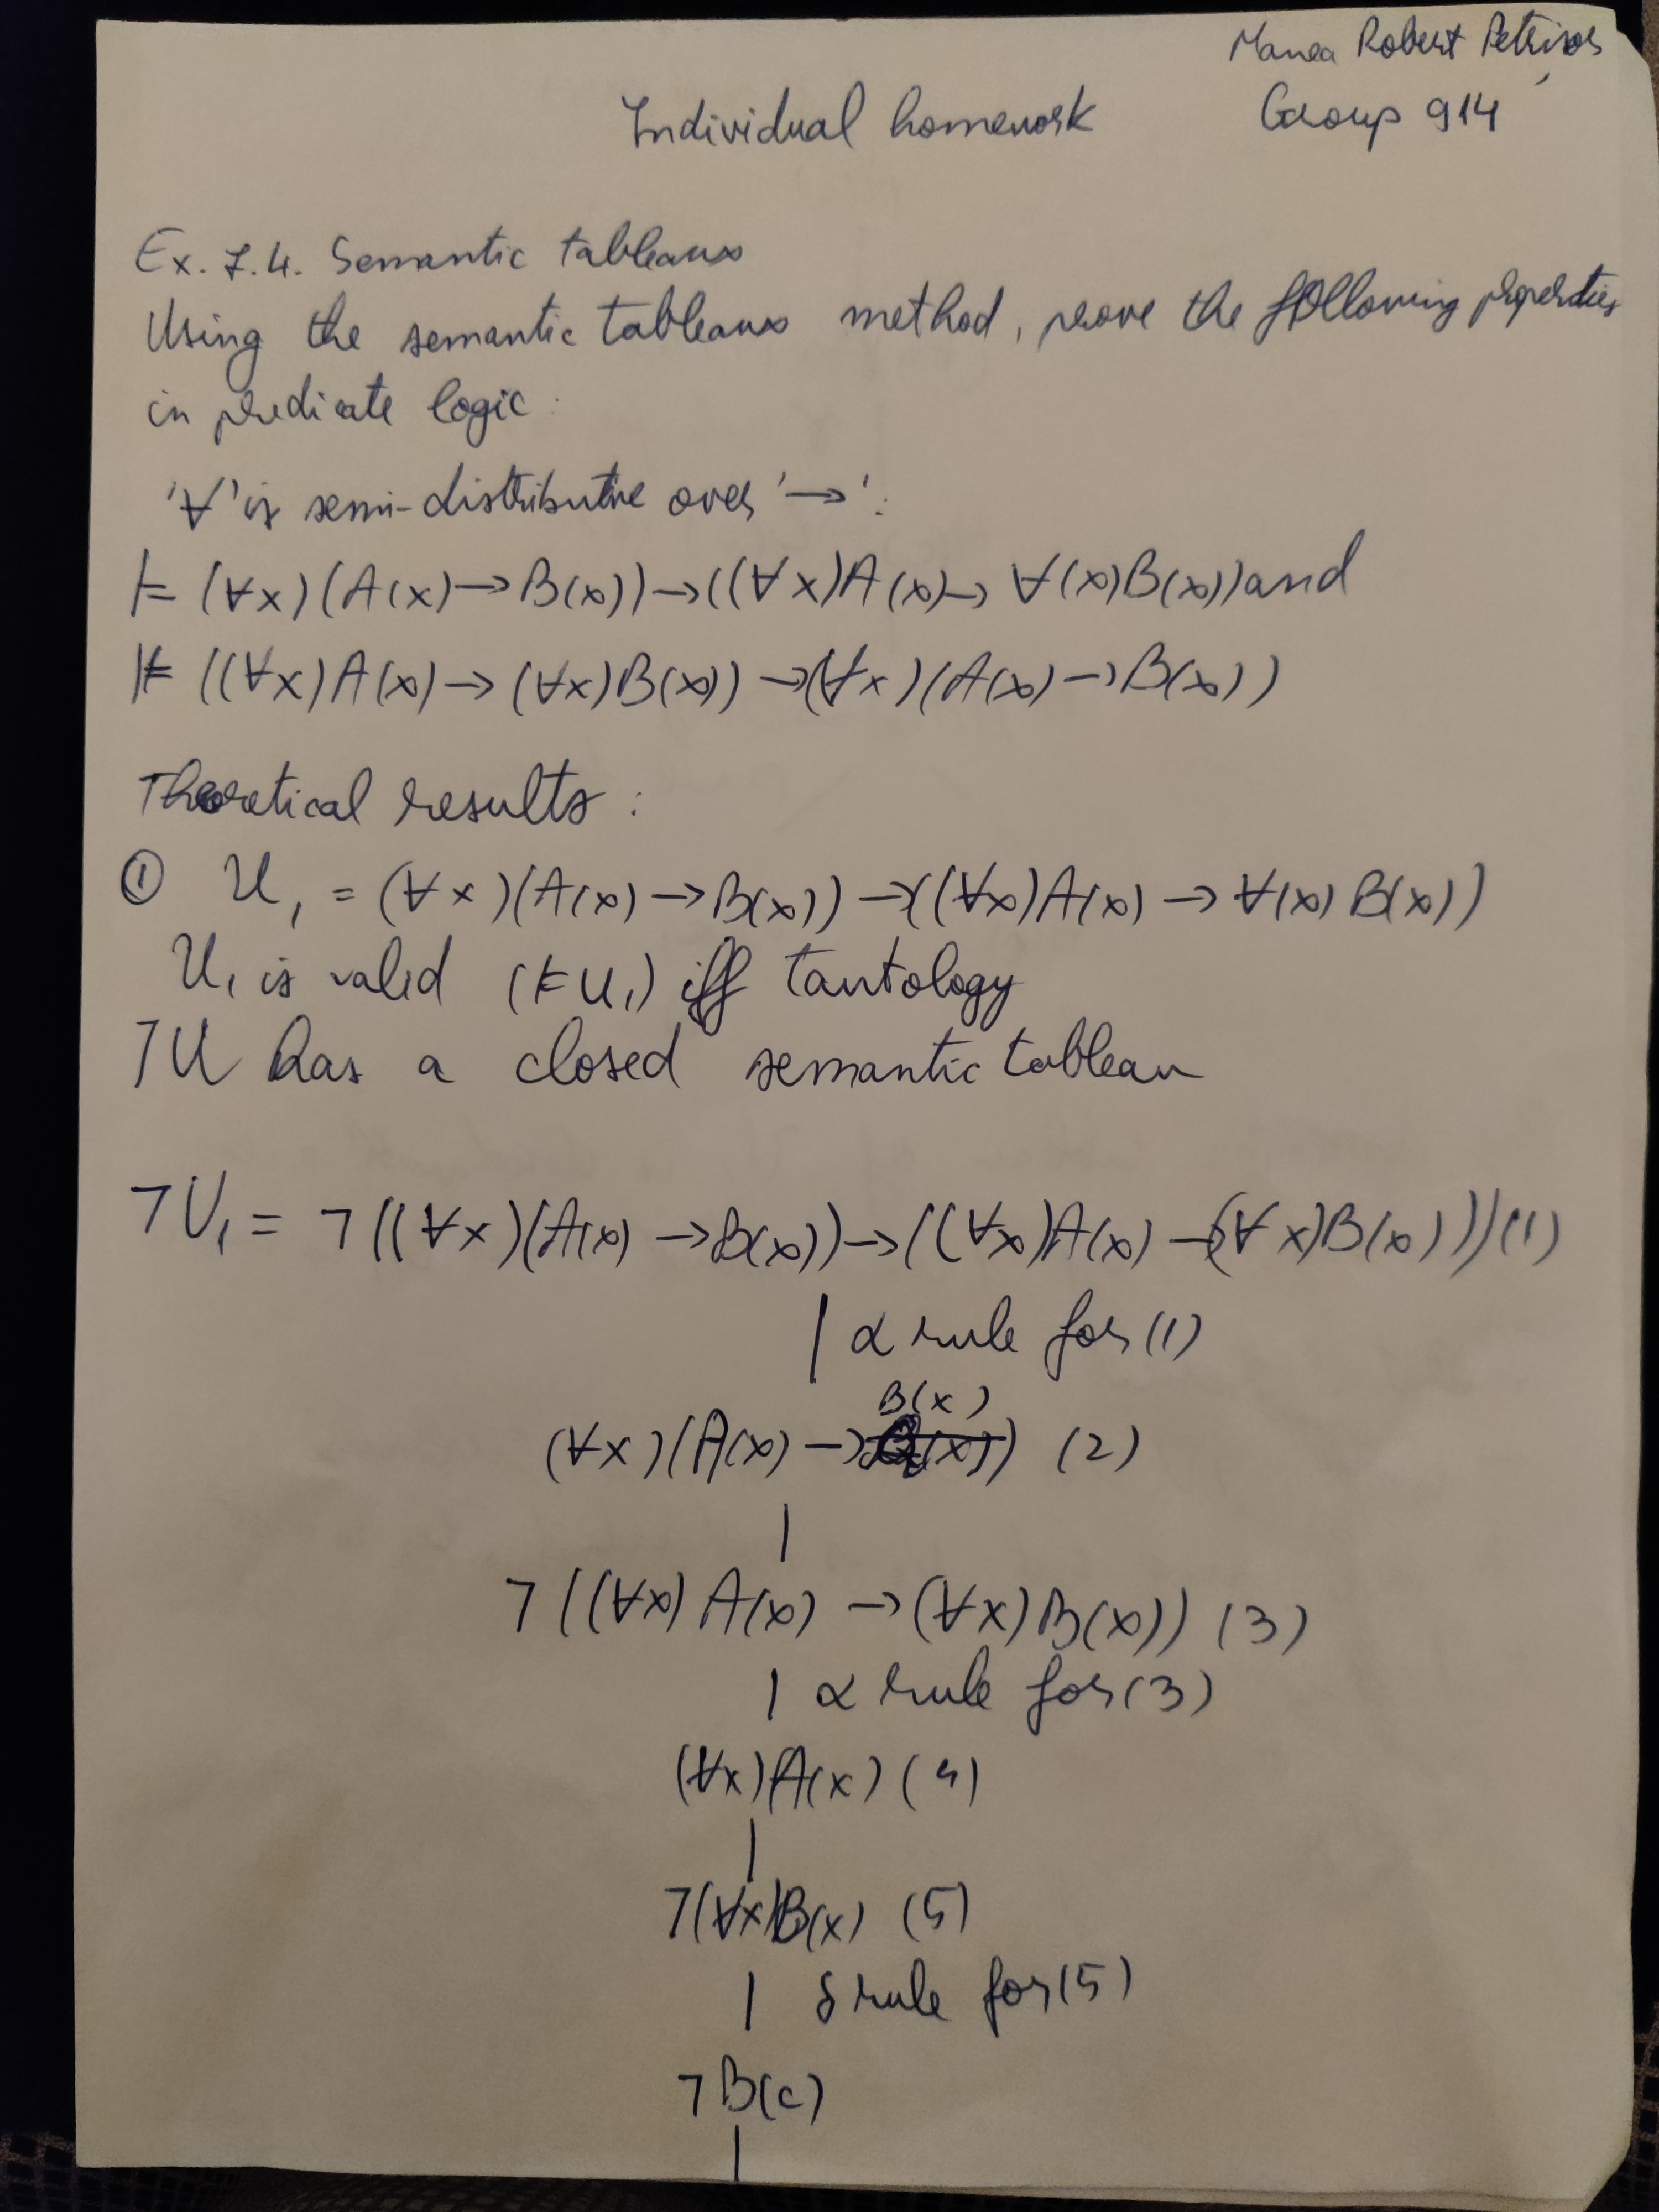 Manea Robert Petrișor
Individual homework
Group 914
Ex. 7.4. Semantic tableaux
Using the semantic tableaux method, prove the following properties
in predicate logic:
'∀' is semi-distributive over '→':
⊨ (∀x)(A(x)→B(x))→((∀x)A(x)→ ∀(x)B(x)) and
⊭ ((∀x)A(x)→(∀x)B(x))→(∀x)(A(x)→B(x))
Theoretical results:
① U₁ = (∀x)(A(x)→B(x))→((∀x)A(x)→∀(x)B(x))
U₁ is valid (⊨U₁) iff tautology
¬U has a closed semantic tableau
¬U₁ = ¬((∀x)(A(x)→B(x))→((∀x)A(x)→(∀x)B(x))) (1)
| α rule for (1)
B(x)
(∀x)(A(x)→ ) (2)
|
¬((∀x)A(x)→(∀x)B(x)) (3)
| α rule for (3)
(∀x)A(x) (4)
|
¬(∀x)B(x) (5)
| δ rule for (5)
¬B(c)
|